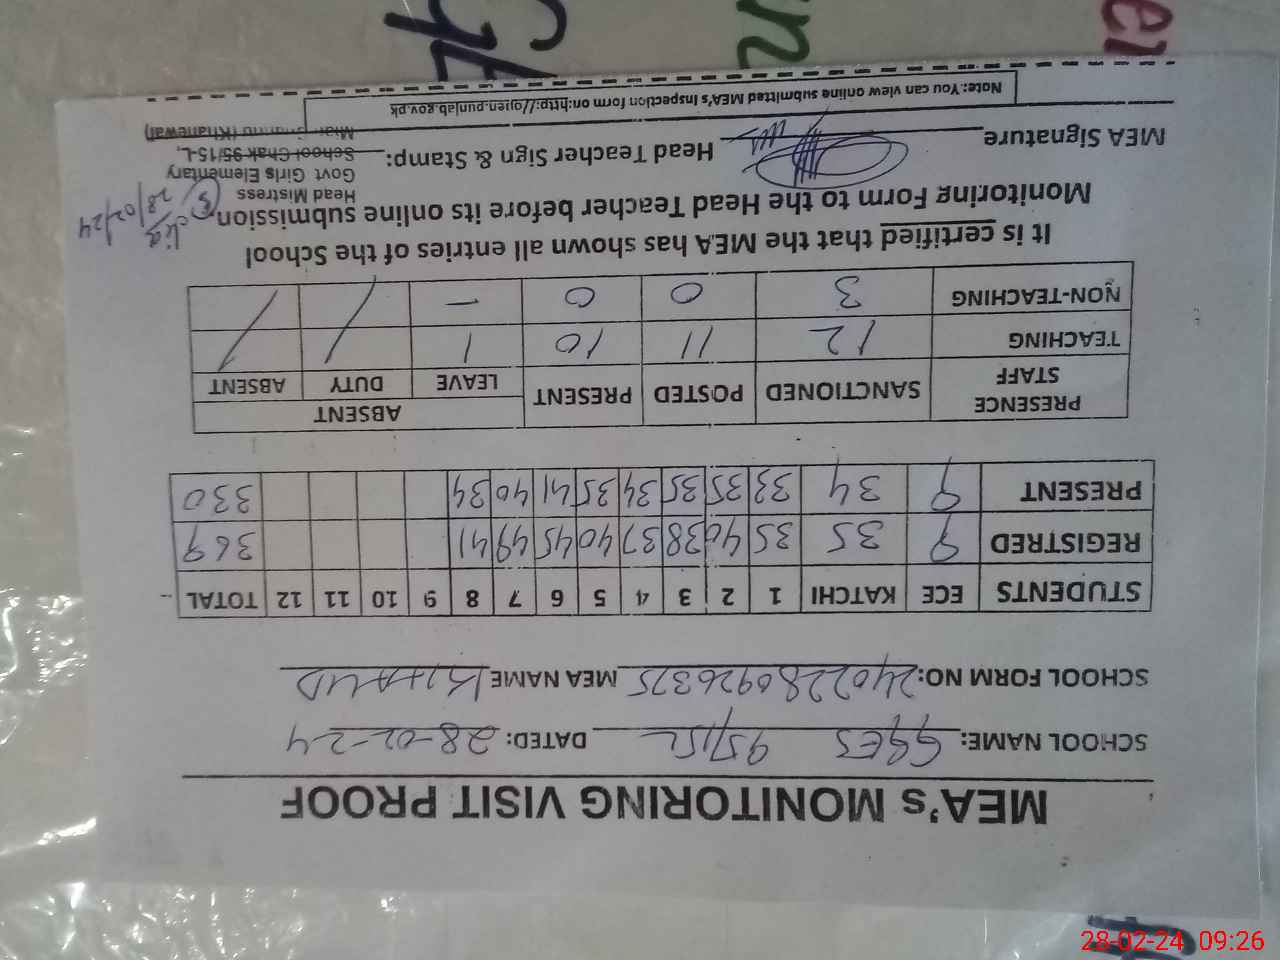 MEA's MONITORING VISIT PROOF
SCHOOL NAME: GGES 95/15L DATED: 28-02-24
SCHOOL FORM NO: 2402280926375 MEA NAME KHALID
STUDENTS ECE KATCHI 1 2 3 4 5 6 7 8 9 10 11 12 TOTAL
REGISTRED 9 35 35 40 38 37 40 45 49 41 369
PRESENT 9 34 33 35 35 34 35 41 40 34 330
PRESENCE STAFF SANCTIONED POSTED PRESENT ABSENT
LEAVE DUTY ABSENT
TEACHING 12 11 10 1 / /
NON-TEACHING 3 0 0 - / /
It is certified that the MEA has shown all entries of the School
Monitoring Form to the Head Teacher before its online submission
MEA Signature Head Teacher Sign & Stamp:
28/02/24
Head Mistress
Govt Girls Elementary
School Chak 95/15-L,
Mian Channu (Khanewal)
Note: You can view online submitted MEA's inspection form on:http://open.punjab.gov.pk
28-02-24 09:26